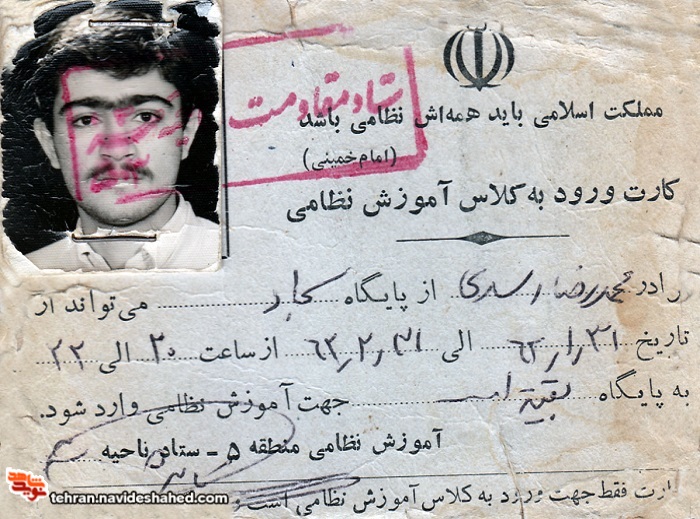 ستاد مقاومت
مملکت اسلامی باید همه‌اش نظامی باشد
(امام خمینی)
کارت ورود به کلاس آموزش نظامی
رادر محمدرضا اسدی از پایگاه سجاد می‌تواند از
تاریخ ۶۲٫۱٫۳۱ الی ۶۲٫۲٫۳۱ از ساعت ۲۰ الی ۲۲
به پایگاه بقیة الله جهت آموزش نظامی وارد شود.
آموزش نظامی منطقه ۵ - ستاد ناحیه
ارت فقط جهت ورود به کلاس آموزش نظامی است
نوید شاهد tehran.navideshahed.com